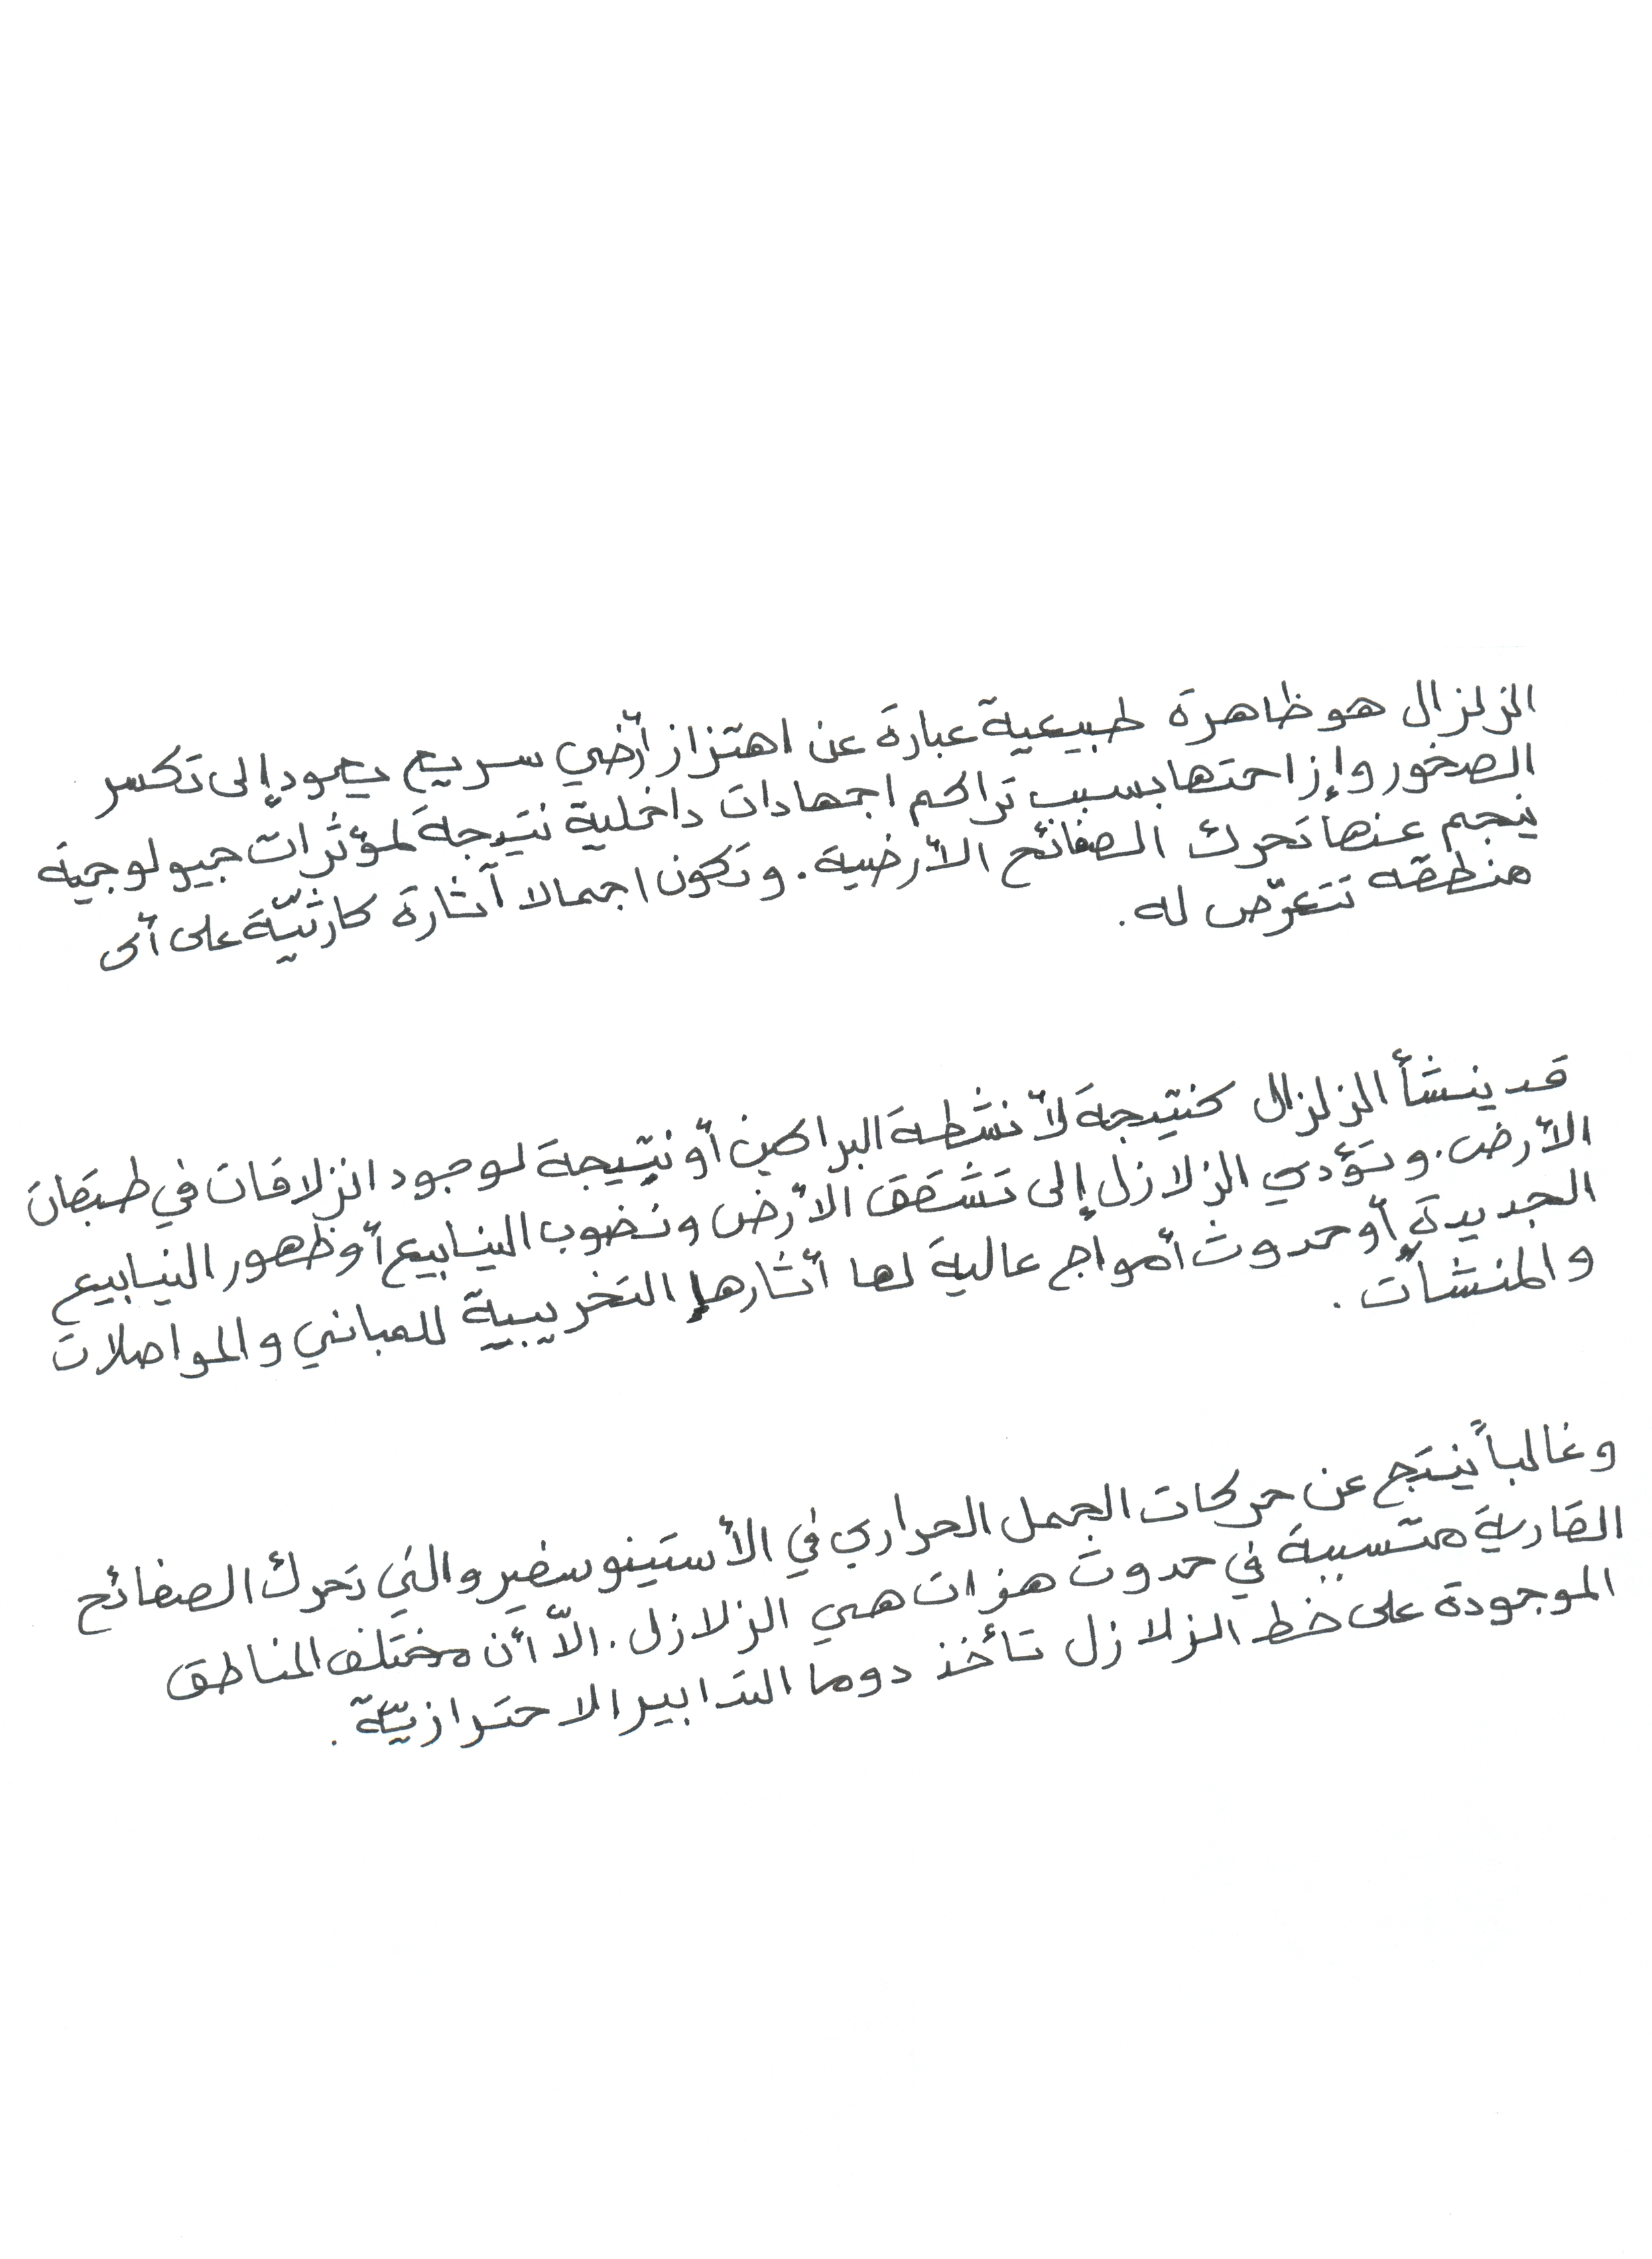 الزلزال هو ظاهرة طبيعية عبارة عن اهتزاز أرضي سريع يعود إلى تكسر
الصخور وإزاحتها بسبب تراكم اجهادات داخلية نتيجة لمؤثرات جيولوجية
ينجم عنها تحرك الصفائح الأرضية. وتكون اجمالا آثارة كارثيّة على أى
منطقه تتعرّض له.
قد ينشأ الزلزال كنتيجة لأنشطة البراكين أو نتيجة لوجود انزلاقات في طبقات
الأرض. وتؤدي الزلازل إلى تشقق الأرض ونضوب الينابيع أو ظهور الينابيع
الجديدة أو حدوث أمواج عالية لها أثارها التخريبية للمباني والمواصلات
والمنشأت.
وغالباً ينتج عن حركات الجمل الحراري في الأستينوسفير والتي تحرك الصفائح
القارية متسببة في حدوث هزات هي الزلازل. الاّ أن مختلف المناطق
الموجودة على خط الزلازل تأخذ دوما التدابير الاحترازيّة.